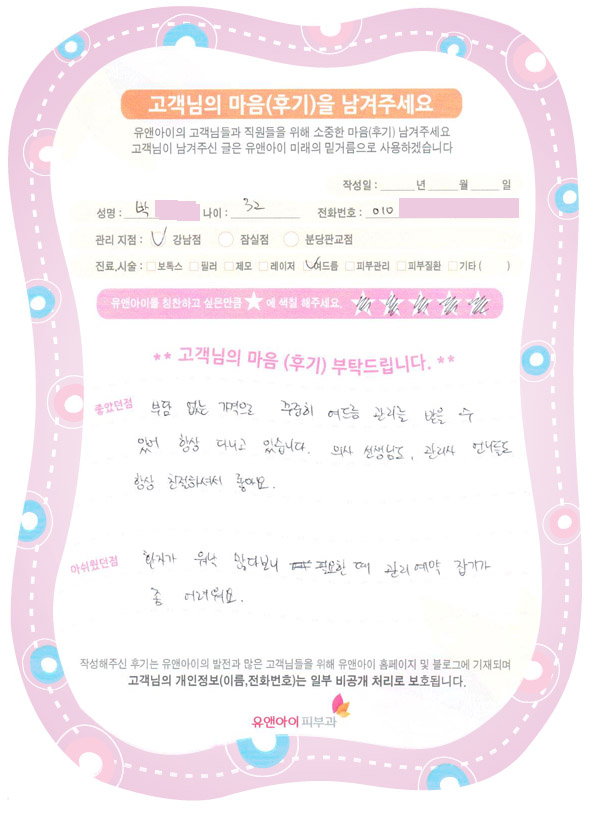 고객님의 마음(후기)을 남겨주세요
유앤아이의 고객님들과 직원들을 위해 소중한 마음(후기) 남겨주세요
고객님이 남겨주신 글은 유앤아이 미래의 밑거름으로 사용하겠습니다
작성일 : 년 월 일
성명 : 박 나이 : 32 전화번호 : 010
관리 지점 : 강남점 잠실점 분당판교점
진료,시술 : 보톡스 필러 제모 레이저 여드름 피부관리 피부질환 기타 ( )
유앤아이를 칭찬하고 싶은만큼 ★ 에 색칠 해주세요.
** 고객님의 마음 (후기) 부탁드립니다. **
좋았던점 부담 없는 가격으로 꾸준히 여드름 관리를 받을 수
있어 항상 다니고 있습니다. 의사 선생님도, 관리사 언니들도
항상 친절하셔서 좋아요.
아쉬웠던점 환자가 워낙 많다보니 필요한 때 관리예약 잡기가
좀 어려워요.
작성해주신 후기는 유앤아이의 발전과 많은 고객님들을 위해 유앤아이 홈페이지 및 블로그에 기재되며
고객님의 개인정보(이름,전화번호)는 일부 비공개 처리로 보호됩니다.
유앤아이 피부과